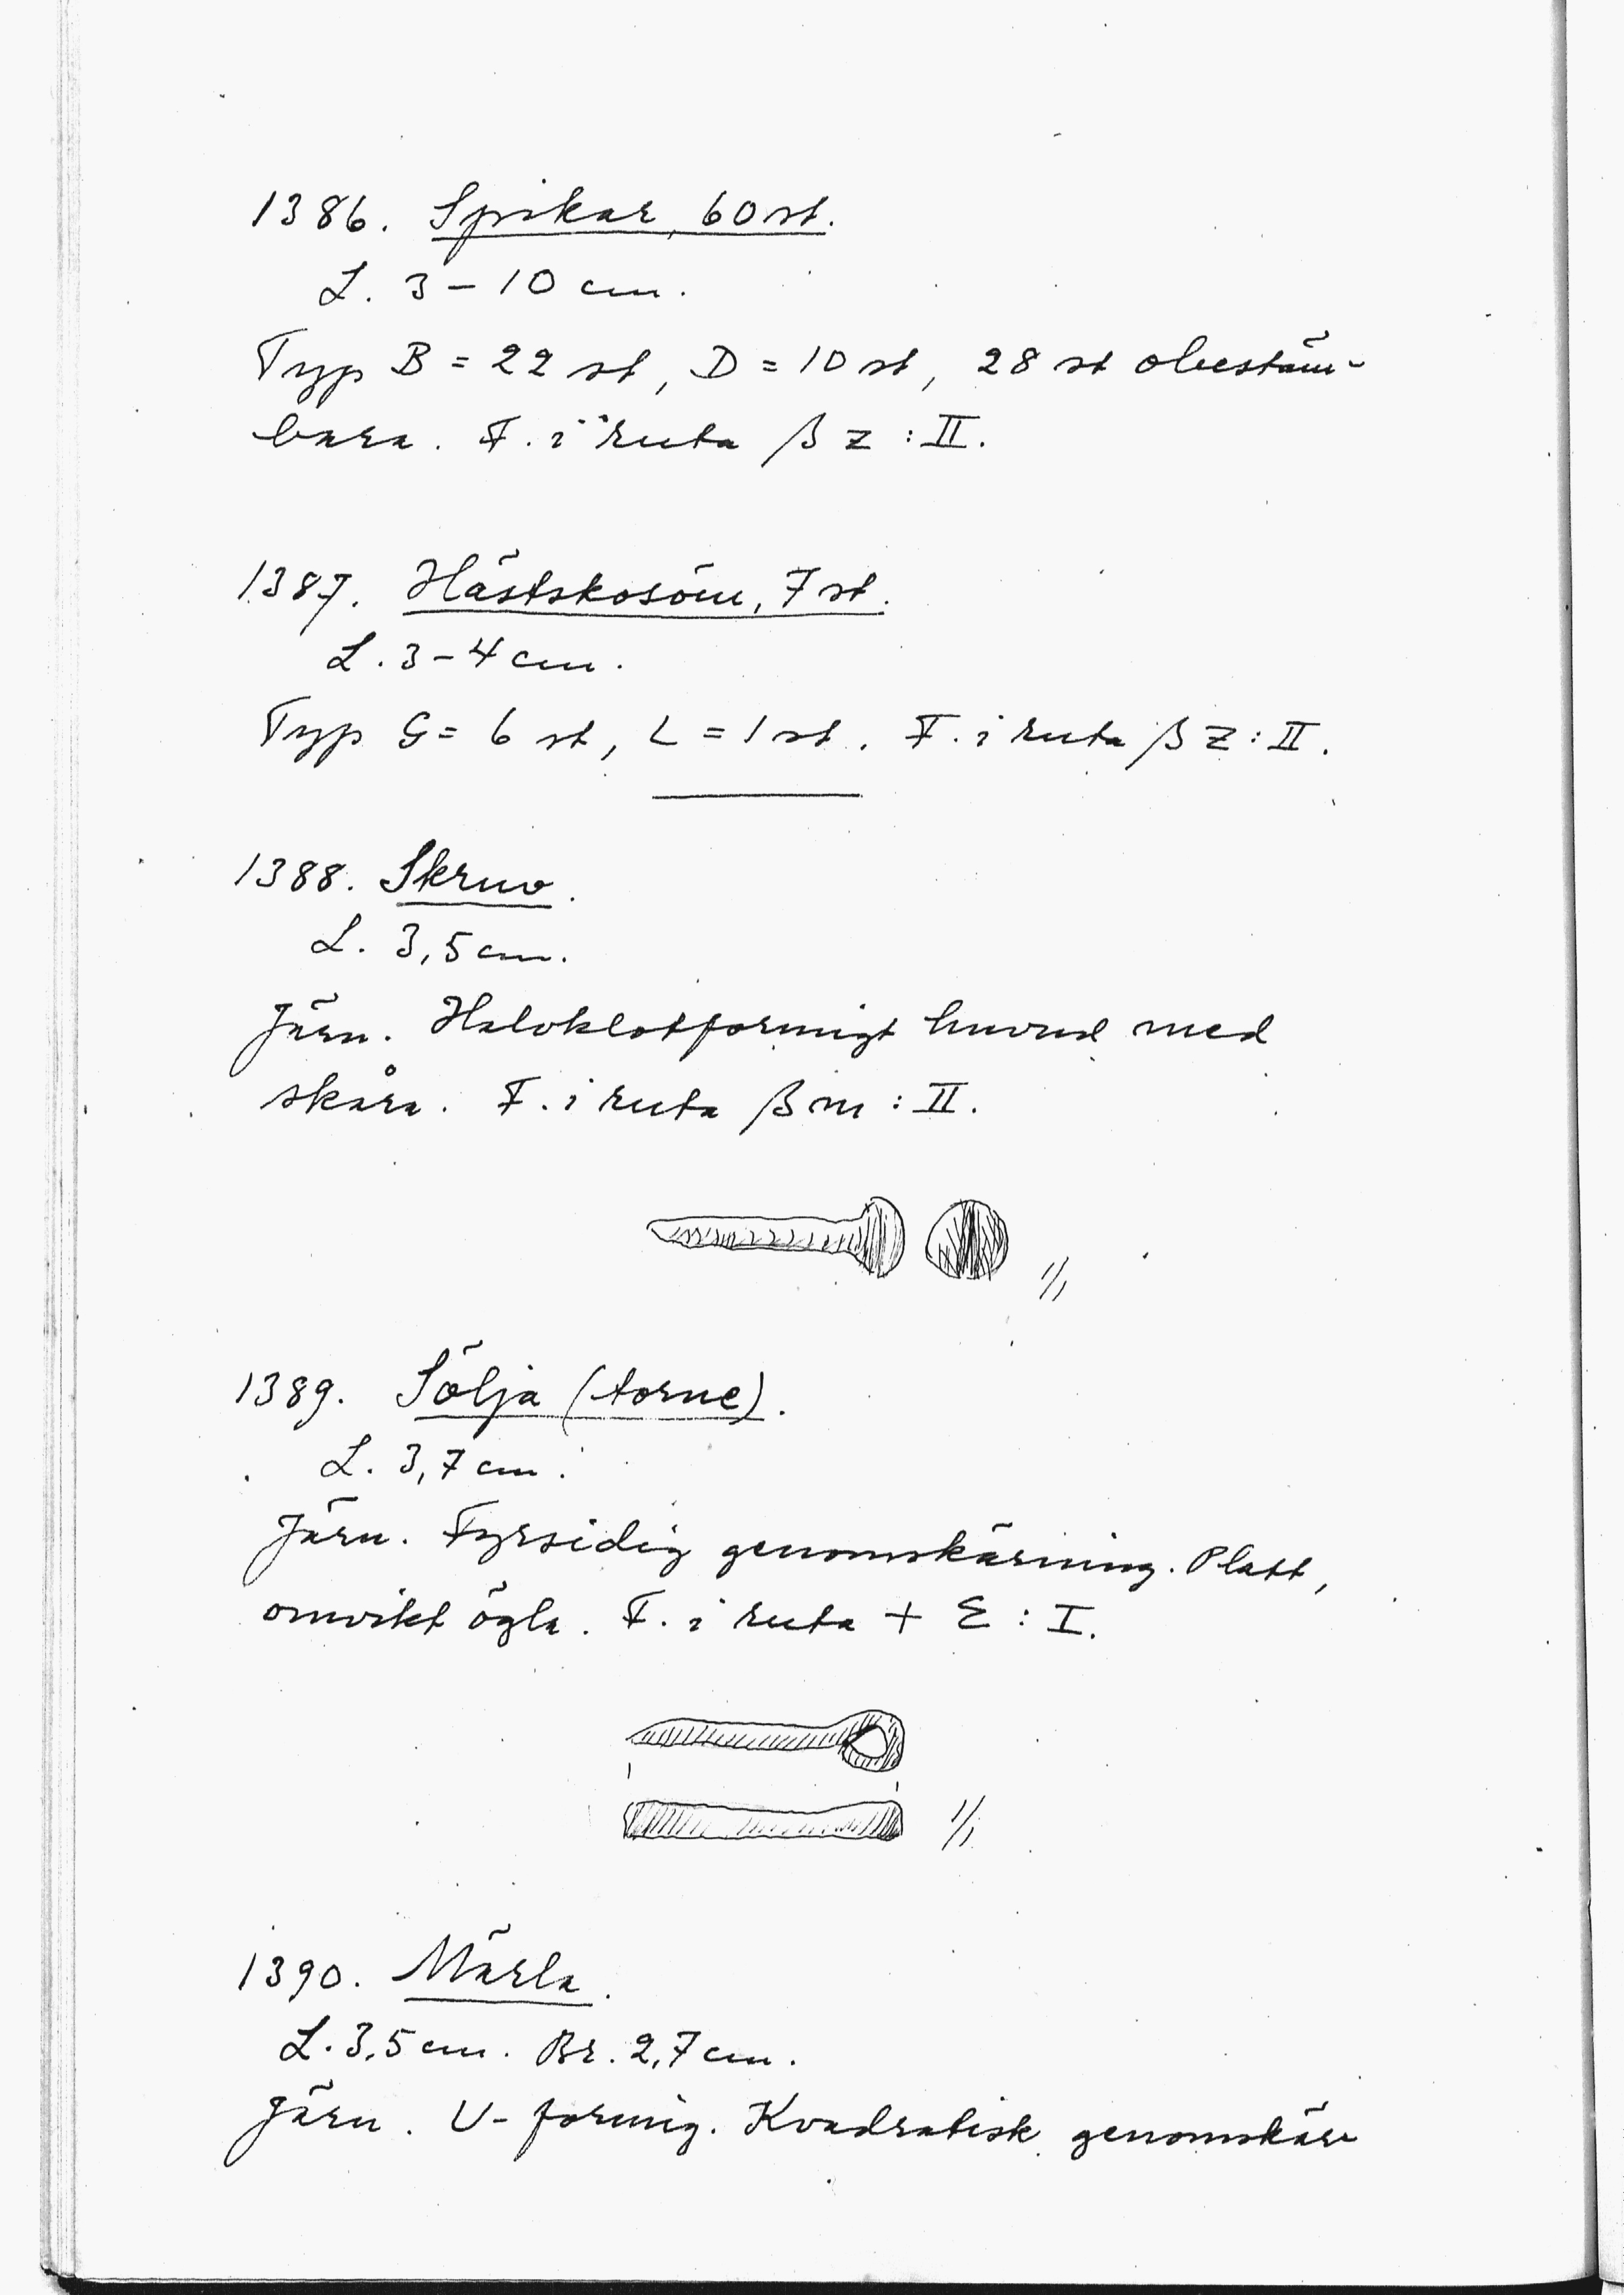 1386. Spikar, 60 st.
L. 3 – 10 cm.
Typ B = 22 st, D = 10 st, 28 st obestäm-
bara. F. i ruta β z : II.
1387. Hästskosöm, 7 st.
L. 3 – 4 cm.
Typ G = 6 st, L = 1 st. F. i ruta β z : II.
1388. Skruv.
L. 3,5 cm.
Järn. Halvklotformigt huvud med
skåra. F. i ruta β m : II.
1/1
1389. Sölja (torne).
L. 3,7 cm.
Järn. Fyrsidig genomskärning. Platt,
omvikt ögla. F. i ruta + E : I.
1/1
1390. Märla.
L. 3,5 cm. Br. 2,7 cm.
Järn. U-formig. Kvadratisk genomskär